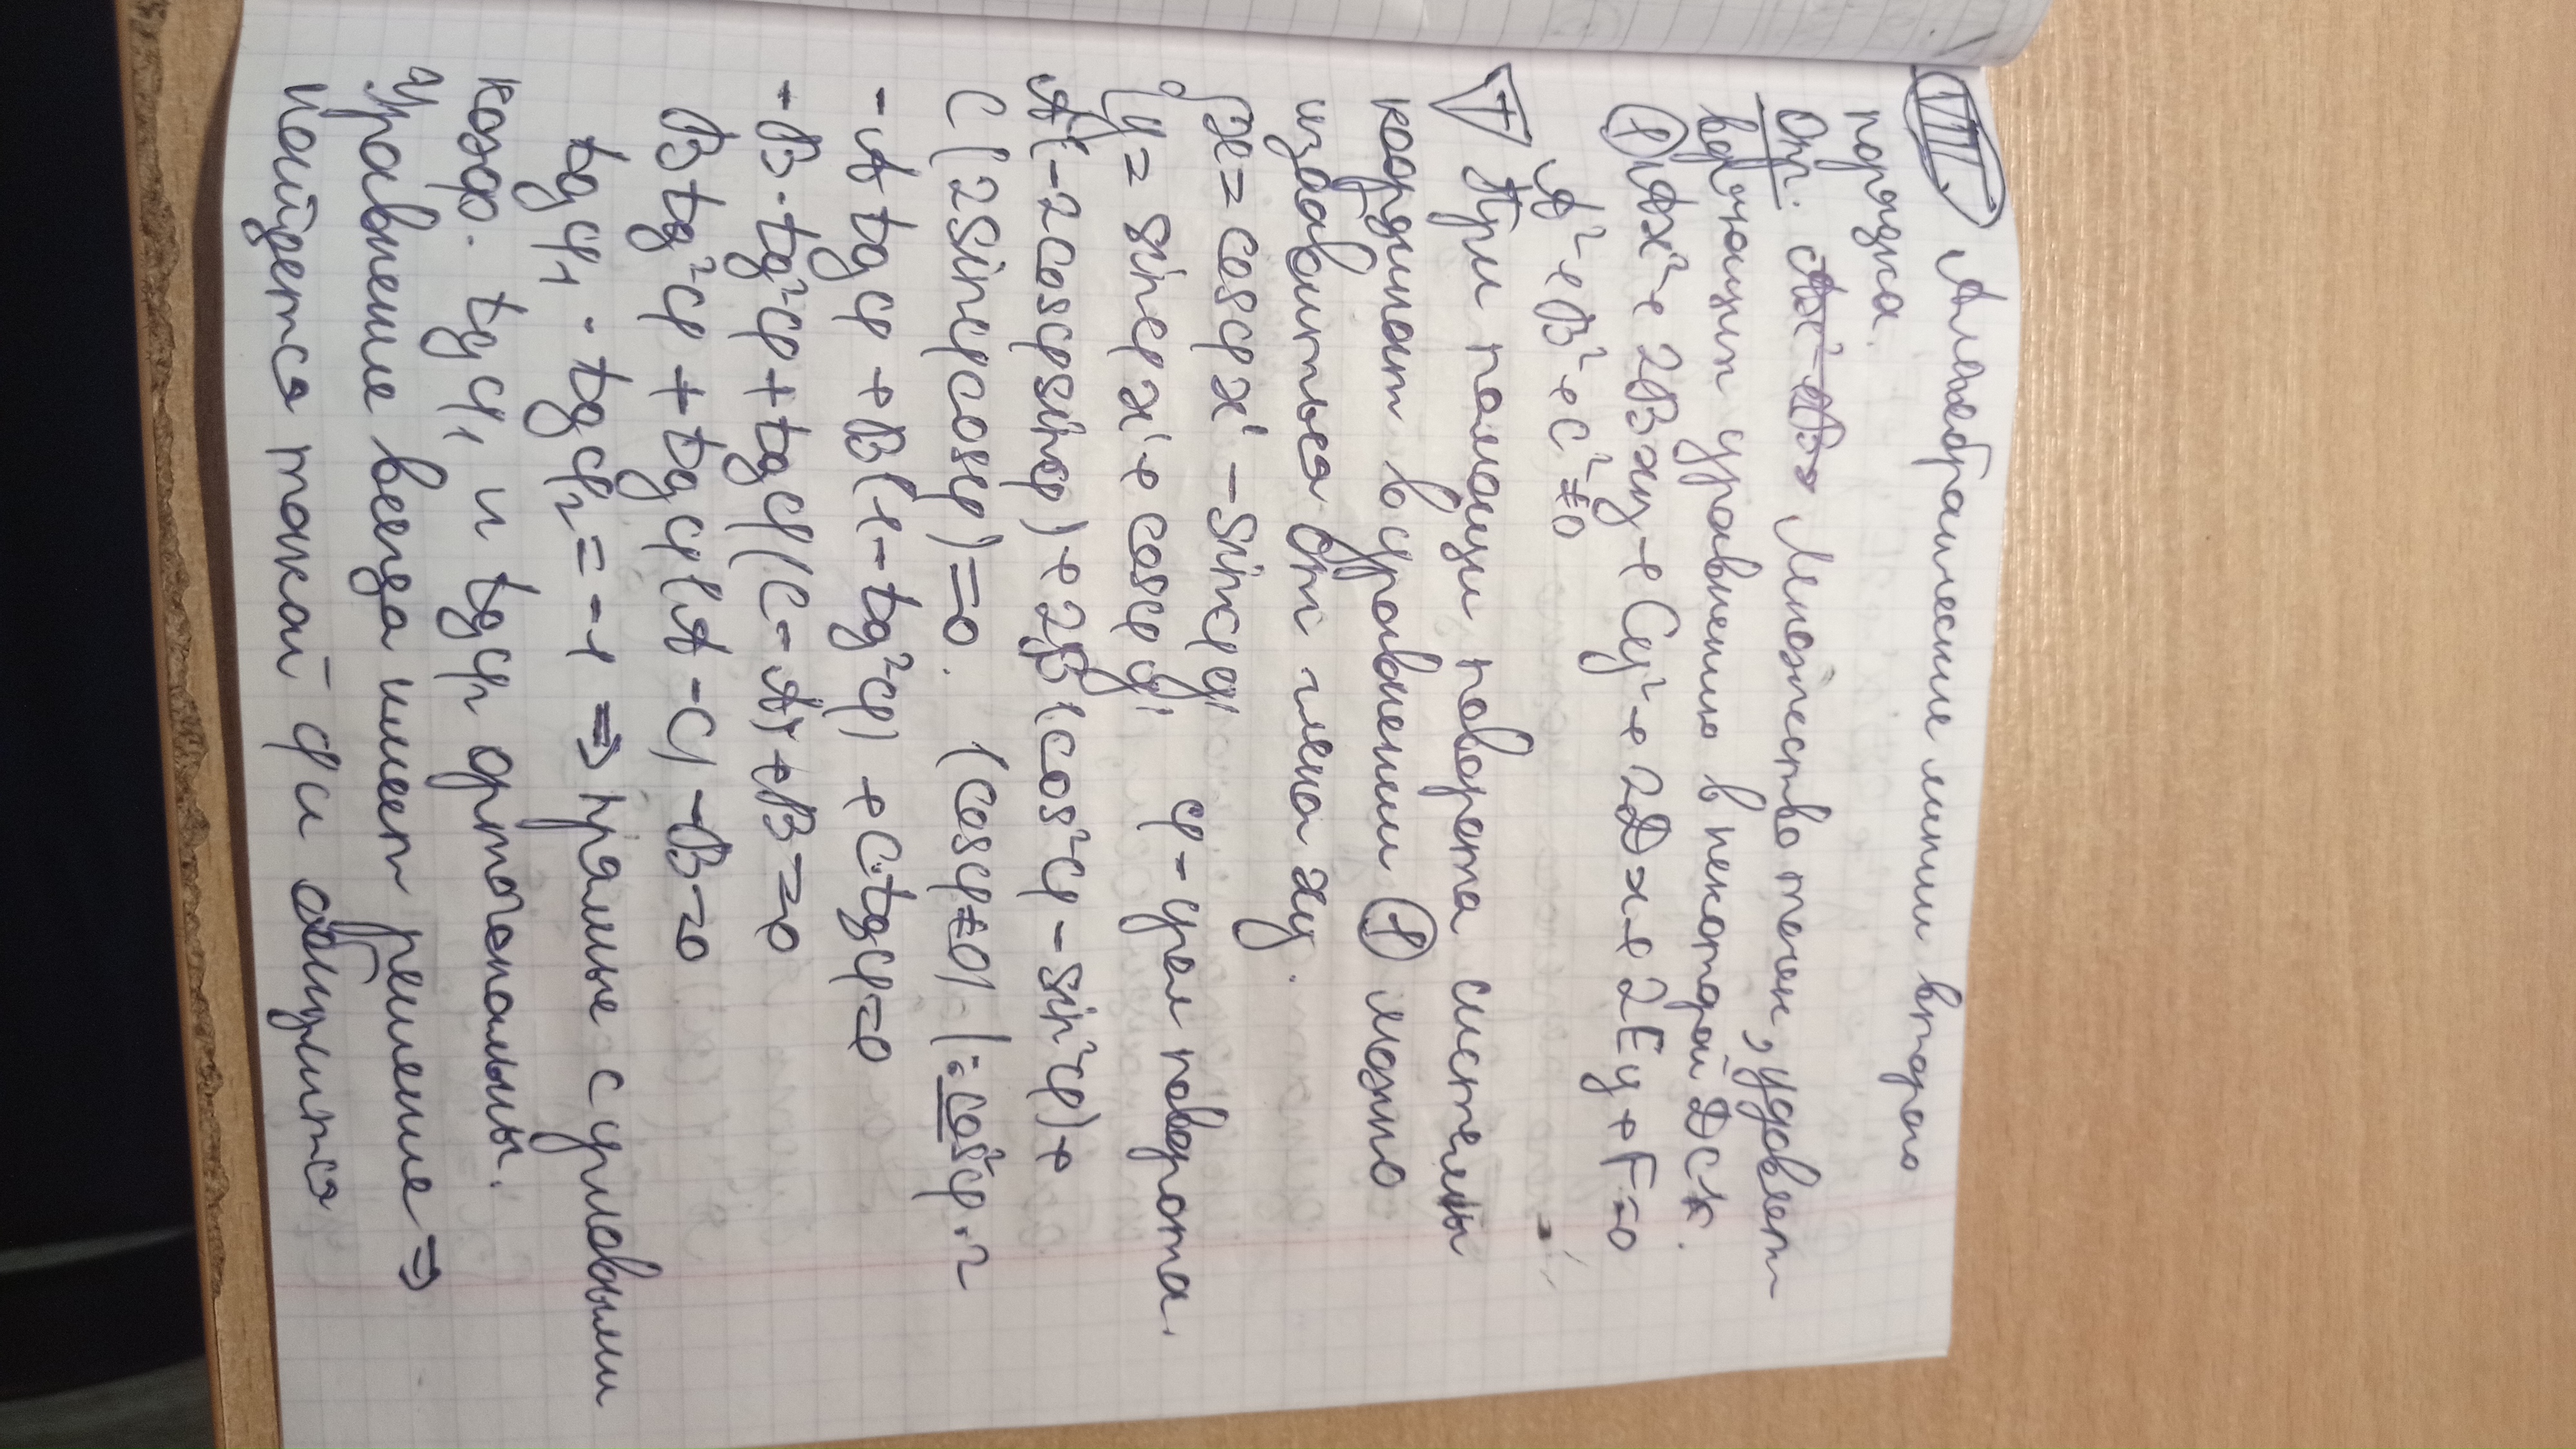 VII. Алгебраические линии второго
порядка.
Опр. Множество точек, удовлет
воряющих уравнению в некоторой ДСК.
① Ax² + 2Bxy + Cy² + 2Dx + 2Ey + F = 0
A² + B² + C² ≠ 0
Т При помощи поворота системы
координат в уравнении ① можно
избавиться от члена xy.
{x = cosφ x' - sinφ y'
{y = sinφ x' + cosφ y' φ - угол поворота.
A(-2cosφsinφ) + 2B(cos²φ - sin²φ) +
C(2sinφcosφ) = 0. (cosφ ≠ 0) |: cos²φ·2
-A tgφ + B(1 - tg²φ) + C·tgφ = 0
-B·tg²φ + tgφ(C - A) + B = 0
B tg²φ + tgφ(A - C) - B = 0
tgφ₁ · tgφ₂ = -1 ⇒ прямые с угловыми
коэф. tgφ₁ и tgφ₂ ортогональны.
Уравнение всегда имеет решение ⇒
найдется такой φ и обнулится